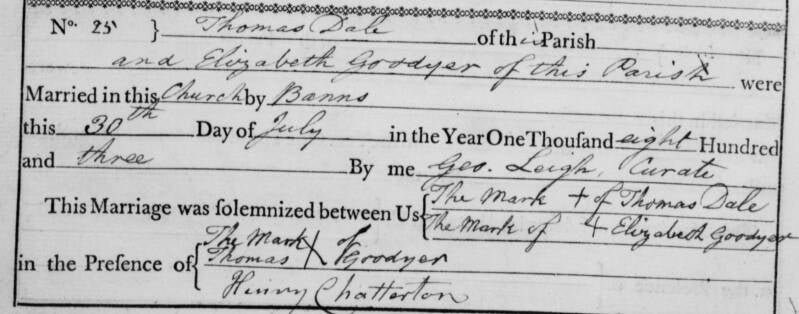 No. 25 } Thomas Dale of this Parish
and Elizabeth Goodyer of this Parish were
Married in this Church by Banns
this 30th Day of July in the Year One Thouſand eight Hundred
and three By me Geo. Leigh, Curate
This Marriage was ſolemnized between Us { The Mark + of Thomas Dale
The Mark of + Elizabeth Goodyer
in the Preſence of { The Mark X of
Thomas Goodyer
Henry Chatterton